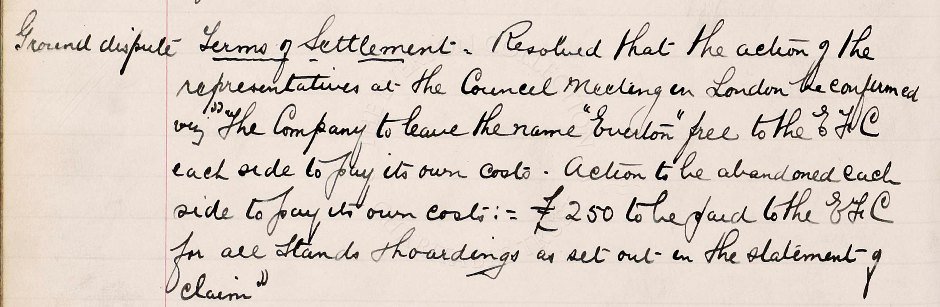 Ground dispute Terms of Settlement - Resolved that the action of the
representatives at the Council Meeting in London be confirmed
viz "The Company to leave the name "Everton" free to the EFC
each side to pay its own costs. Action to be abandoned each
side to pay its own costs:= £250 to be paid to the EFC
for all Stands & hoardings as set out in the statement of
claim"